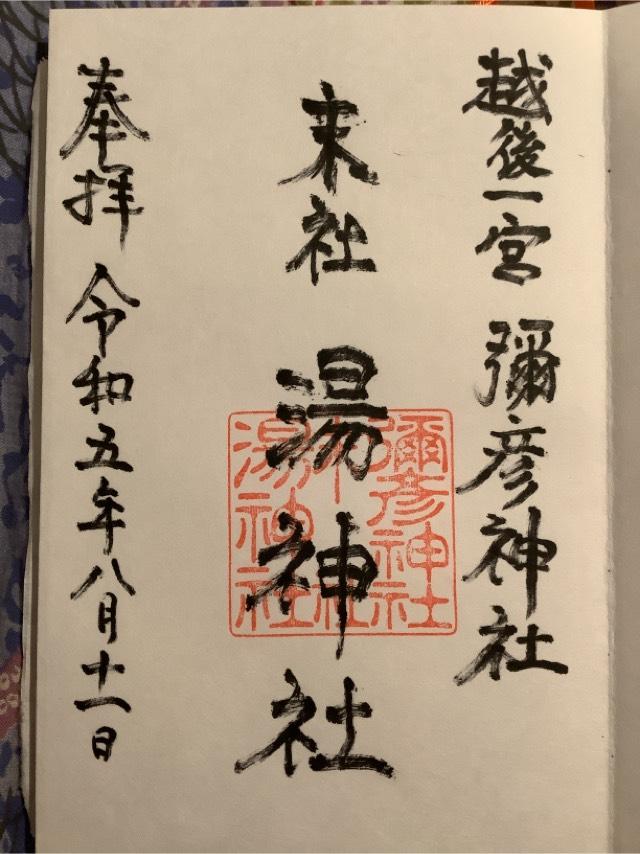 越後一宮 彌彦神社
末社 湯神社
奉拝 令和五年八月十一日
彌彦神社
末社
湯神社